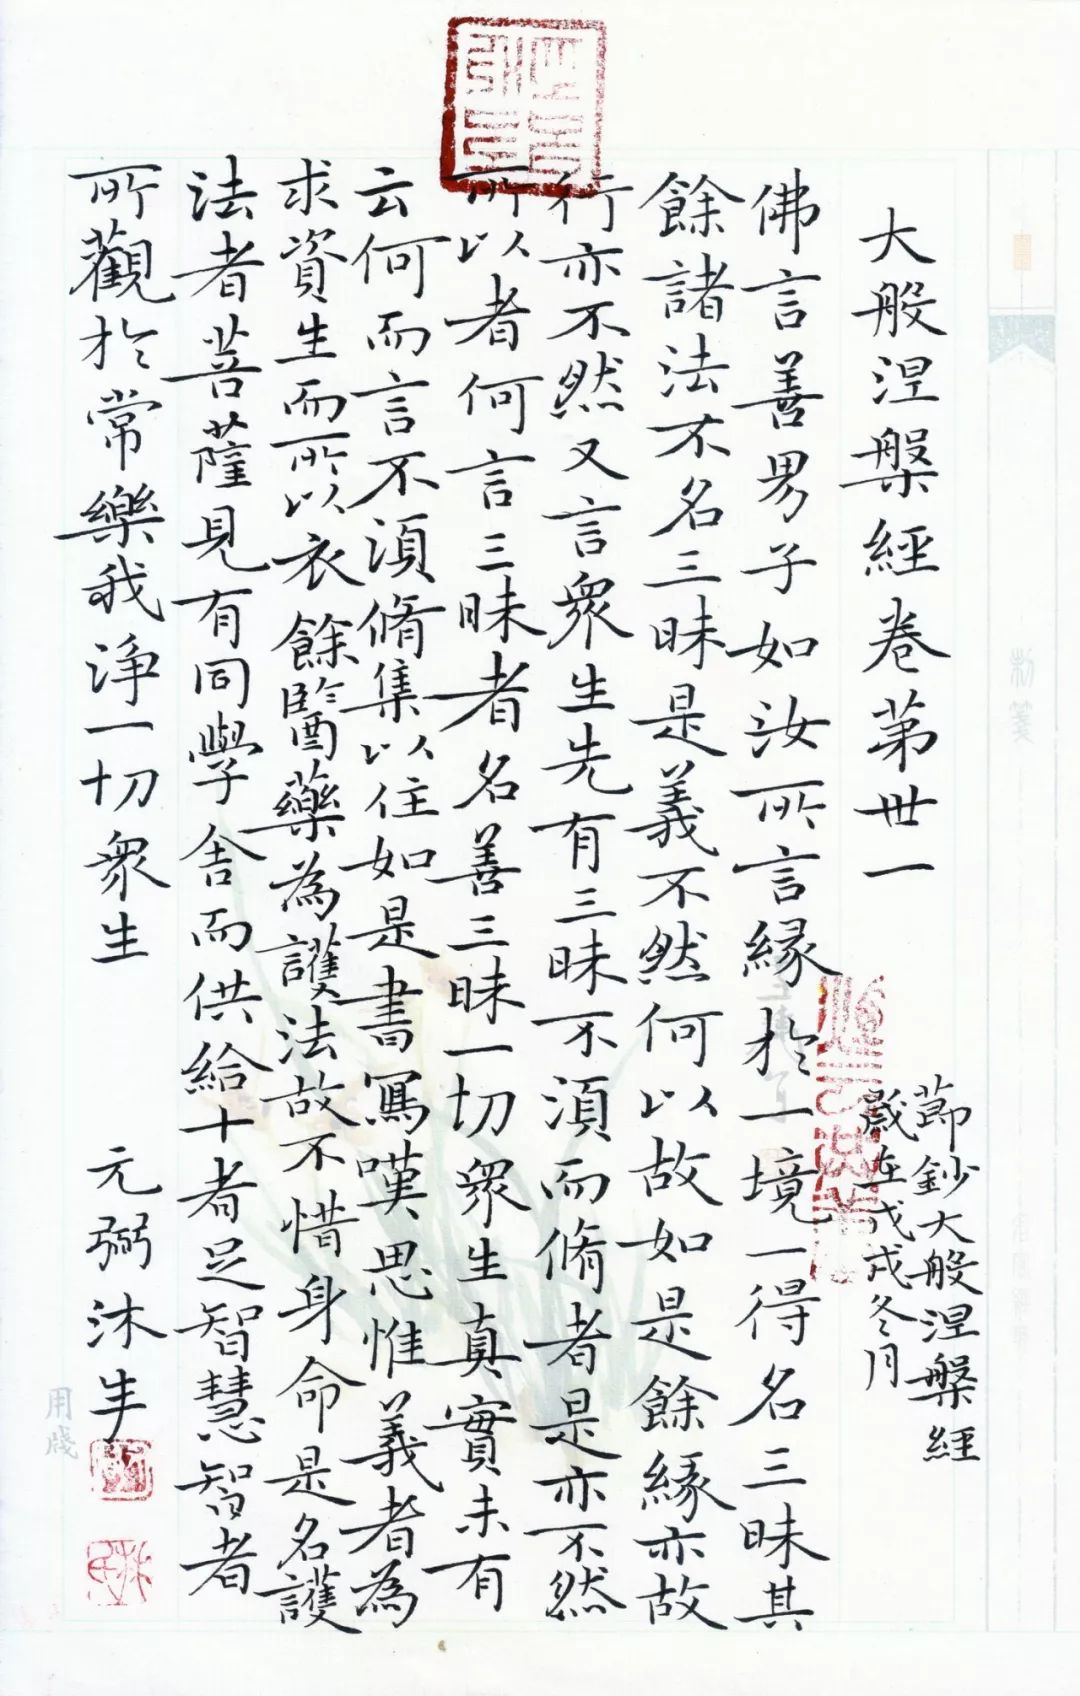 大般涅槃經卷第世一
節鈔大般涅槃經
歲在戊戌冬月
佛言善男子如汝所言緣於一境一得名三昧其
餘諸法不名三昧是義不然何以故如是餘緣亦故
行亦不然又言衆生先有三昧不須而脩者是亦不然
所以者何言三昧者名善三昧一切衆生真實未有
云何而言不須脩集以住如是書寫嘆思惟義者為
求資生而所以衣餘醫藥為護法故不惜身命是名護
法者菩薩見有同學舍而供給十者足智慧智者
所觀於常樂我淨一切衆生
元弼沐手
用箋